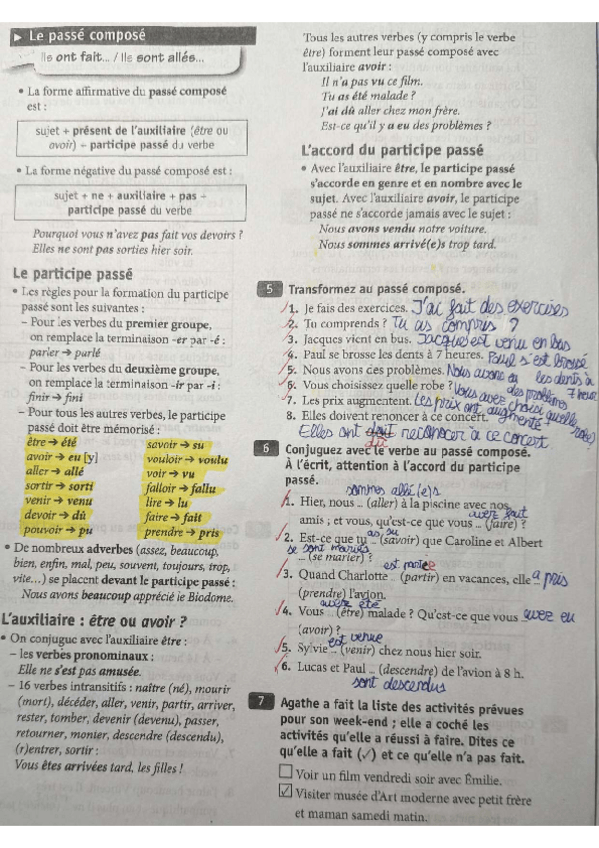 ▶ Le passé composé
Ils ont fait... / Ils sont allés...
• La forme affirmative du passé composé
est :
sujet + présent de l'auxiliaire (être ou
avoir) + participe passé du verbe
• La forme négative du passé composé est :
sujet + ne + auxiliaire + pas +
participe passé du verbe
Pourquoi vous n'avez pas fait vos devoirs ?
Elles ne sont pas sorties hier soir.
Le participe passé
• Les règles pour la formation du participe
passé sont les suivantes :
– Pour les verbes du premier groupe,
on remplace la terminaison -er par -é :
parler → parlé
– Pour les verbes du deuxième groupe,
on remplace la terminaison -ir par -i :
finir → fini
– Pour tous les autres verbes, le participe
passé doit être mémorisé :
être → été
avoir → eu [y]
aller → allé
sortir → sorti
venir → venu
devoir → dû
pouvoir → pu
savoir → su
vouloir → voulu
voir → vu
falloir → fallu
lire → lu
faire → fait
prendre → pris
• De nombreux adverbes (assez, beaucoup,
bien, enfin, mal, peu, souvent, toujours, trop,
vite...) se placent devant le participe passé :
Nous avons beaucoup apprécié le Biodome.
L'auxiliaire : être ou avoir ?
• On conjugue avec l'auxiliaire être :
– les verbes pronominaux :
Elle ne s'est pas amusée.
– 16 verbes intransitifs : naître (né), mourir
(mort), décéder, aller, venir, partir, arriver,
rester, tomber, devenir (devenu), passer,
retourner, monter, descendre (descendu),
(r)entrer, sortir :
Vous êtes arrivées tard, les filles !
Tous les autres verbes (y compris le verbe
être) forment leur passé composé avec
l'auxiliaire avoir :
Il n'a pas vu ce film.
Tu as été malade ?
J'ai dû aller chez mon frère.
Est-ce qu'il y a eu des problèmes ?
L'accord du participe passé
• Avec l'auxiliaire être, le participe passé
s'accorde en genre et en nombre avec le
sujet. Avec l'auxiliaire avoir, le participe
passé ne s'accorde jamais avec le sujet :
Nous avons vendu notre voiture.
Nous sommes arrivé(e)s trop tard.
5 Transformez au passé composé.
1. Je fais des exercices. J'ai fait des exercices
2. Tu comprends ? Tu as compris ?
3. Jacques vient en bus. Jacques est venu en bus
4. Paul se brosse les dents à 7 heures. Paul s'est brossé
les dents à 7 heure
5. Nous avons des problèmes. Nous avons eu
des problèmes
6. Vous choisissez quelle robe ? Vous avez choisi quelle robe
7. Les prix augmentent. Les prix ont augmenté
8. Elles doivent renoncer à ce concert.
Elles ont dû renoncer à ce concert
6 Conjuguez avec le verbe au passé composé.
À l'écrit, attention à l'accord du participe
passé.
sommes allé(e)s
1. Hier, nous ... (aller) à la piscine avec nos
avez fait
amis ; et vous, qu'est-ce que vous ... (faire) ?
as su
2. Est-ce que tu ... (savoir) que Caroline et Albert
se sont mariés
... (se marier) ?
est partie
3. Quand Charlotte ... (partir) en vacances, elle a pris
(prendre) l'avion.
avez été
4. Vous ... (être) malade ? Qu'est-ce que vous avez eu
(avoir) ?
est venue
5. Sylvie ... (venir) chez nous hier soir.
6. Lucas et Paul ... (descendre) de l'avion à 8 h.
sont descendus
7 Agathe a fait la liste des activités prévues
pour son week-end ; elle a coché les
activités qu'elle a réussi à faire. Dites ce
qu'elle a fait (✓) et ce qu'elle n'a pas fait.
☐ Voir un film vendredi soir avec Émilie.
☑ Visiter musée d'Art moderne avec petit frère
et maman samedi matin.